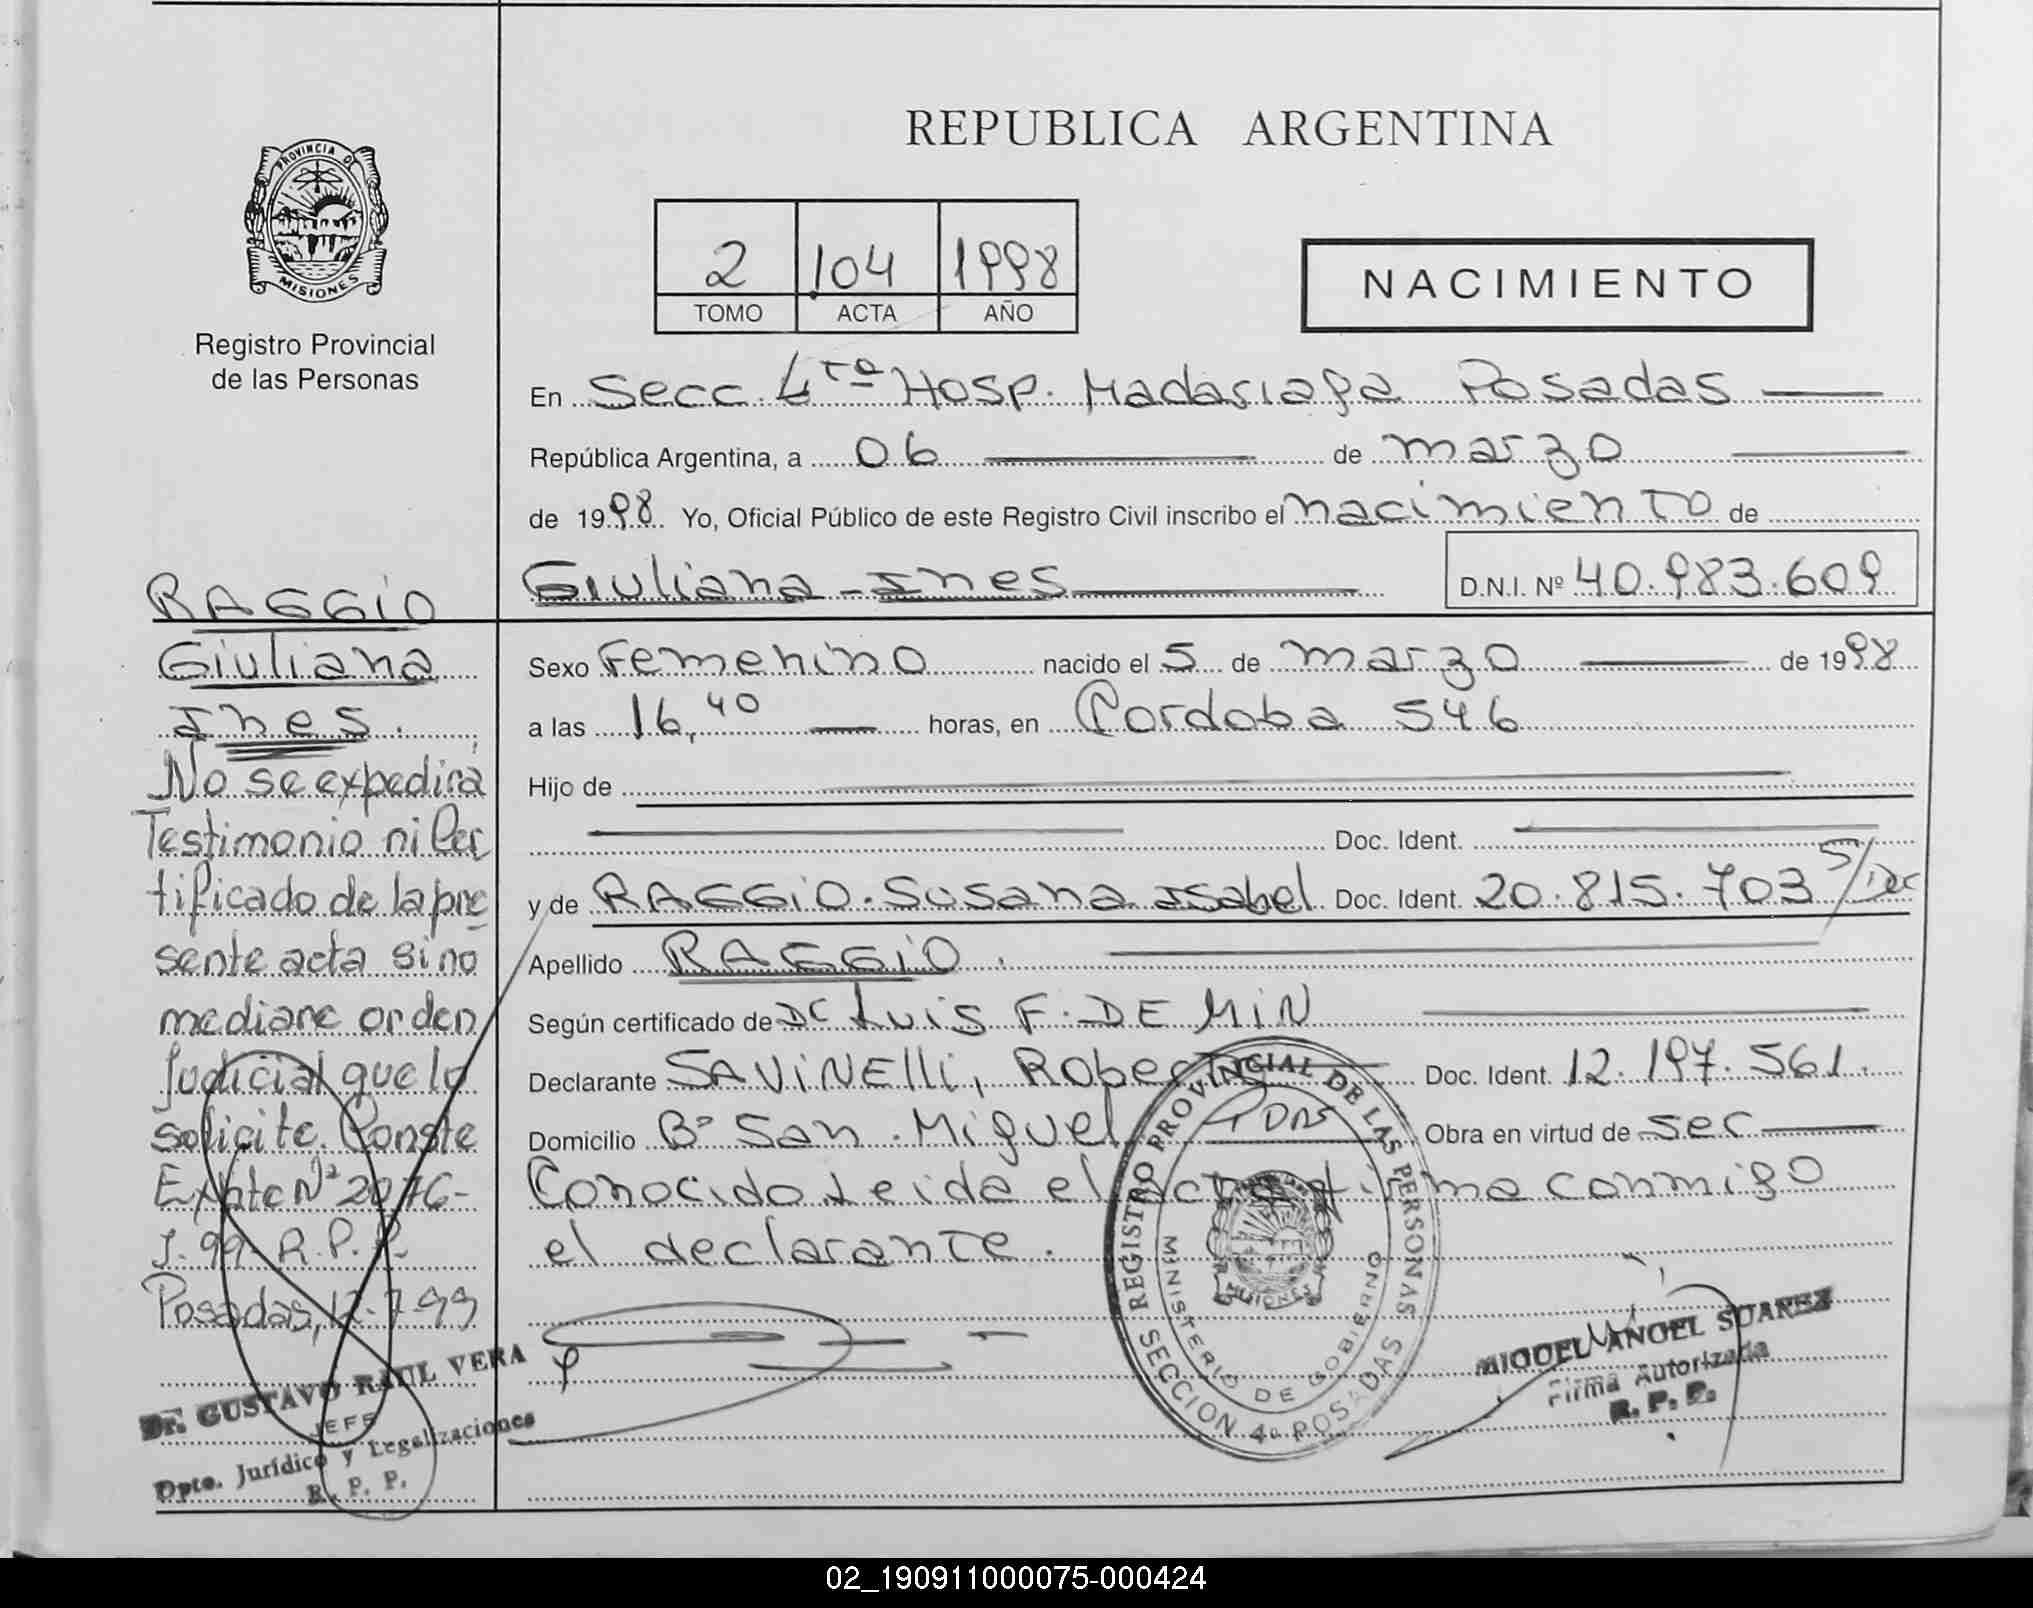 REPUBLICA ARGENTINA
PROVINCIA DE
MISIONES
Registro Provincial
de las Personas
2 104 1998
TOMO ACTA AÑO
NACIMIENTO
En Secc. 4ta Hosp. Madariaga Posadas
República Argentina, a 06 de marzo
de 1998 Yo, Oficial Público de este Registro Civil inscribo el nacimiento de
Giuliana - Ines D.N.I. Nº 40.983.609
Sexo Femenino nacido el 5 de marzo de 1998
a las 16,40 horas, en Cordoba 546
Hijo de
Doc. Ident.
y de RAGGiO. Susana Isabel Doc. Ident. 20.815.703 S/Dec
Apellido RAGGiO.
Según certificado de Dr Luis F. DE MiN
Declarante SAViNElli, Roberto Doc. Ident. 12.197.561.
Domicilio Bº San Miguel Pdas Obra en virtud de sec
Conocido Leida el acta firma conmigo
el declarante.
RAGGiO
Giuliana
Ines.
No se expedirá
Testimonio ni Cer
tificado de la pre
sente acta sino
mediane orden
Judicial que lo
solicite. Conste
Expte Nº 2076-
J-99- R.P.P.
Posadas, 12-7-99
Dr. GUSTAVO RAUL VERA
JEFE
Dpto. Jurídico y Legalizaciones
R. P. P.
REGISTRO PROVINCIAL DE LAS PERSONAS
MINISTERIO DE GOBIERNO
MISIONES
SECCION 4a POSADAS
MIGUEL ANGEL SUAREZ
Firma Autorizada
R. P. P.
02_190911000075-000424